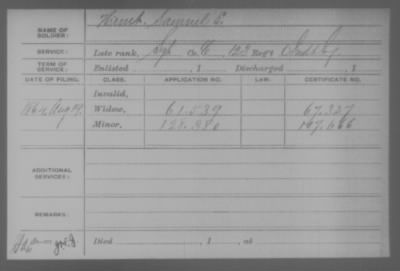 NAME OF SOLDIER: Samuel S.
SERVICE: Late rank, Co. 103 Reg't
TERM OF SERVICE: Enlisted , 1 Discharged , 1
DATE OF FILING. CLASS. APPLICATION NO. LAW. CERTIFICATE NO.
Invalid,
Aug Widow, 61.539 67.327
Minor, 128.380
ADDITIONAL SERVICES:
REMARKS:
Died , 1 , at